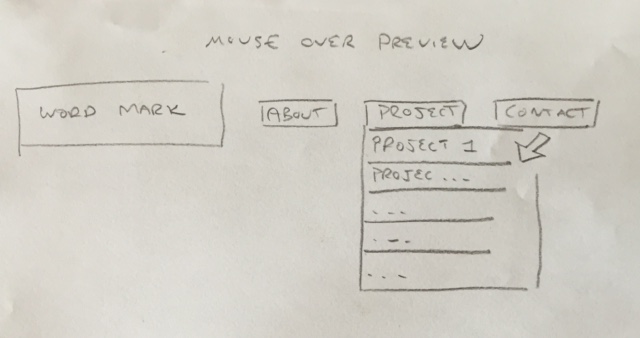 MOUSE OVER PREVIEW
WORD MARK
ABOUT
PROJECT
CONTACT
PROJECT 1
PROJEC ...
...
...
...